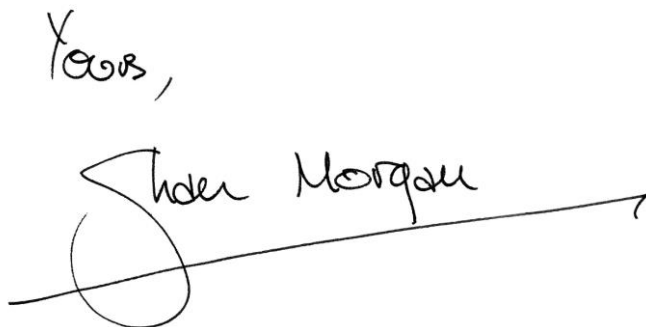 Yours,
Shan Morgan